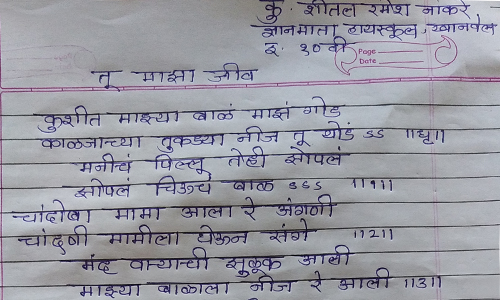 कु. शीतल रमेश नाकरे
ज्ञानमाता हायस्कूल, खानवेल
इ. १० वी
Page
Date
तू माझा जीव
कुशीत माझ्या बाळं माझं गोड
काळजाच्या तुकड्या नीज तू थोडं ऽऽ ॥धृ॥
मनीचं पिल्लू तोही सोपलं
झोपलं चिऊचं बाळ ऽऽऽ ॥१॥
चांदोबा मामा आला रे अंगणी
चांदणी मामीला घेऊन संगे ॥2॥
मंद वाऱ्याची झुळूक आली
माझ्या बाळाला नीज रे आली ॥3॥